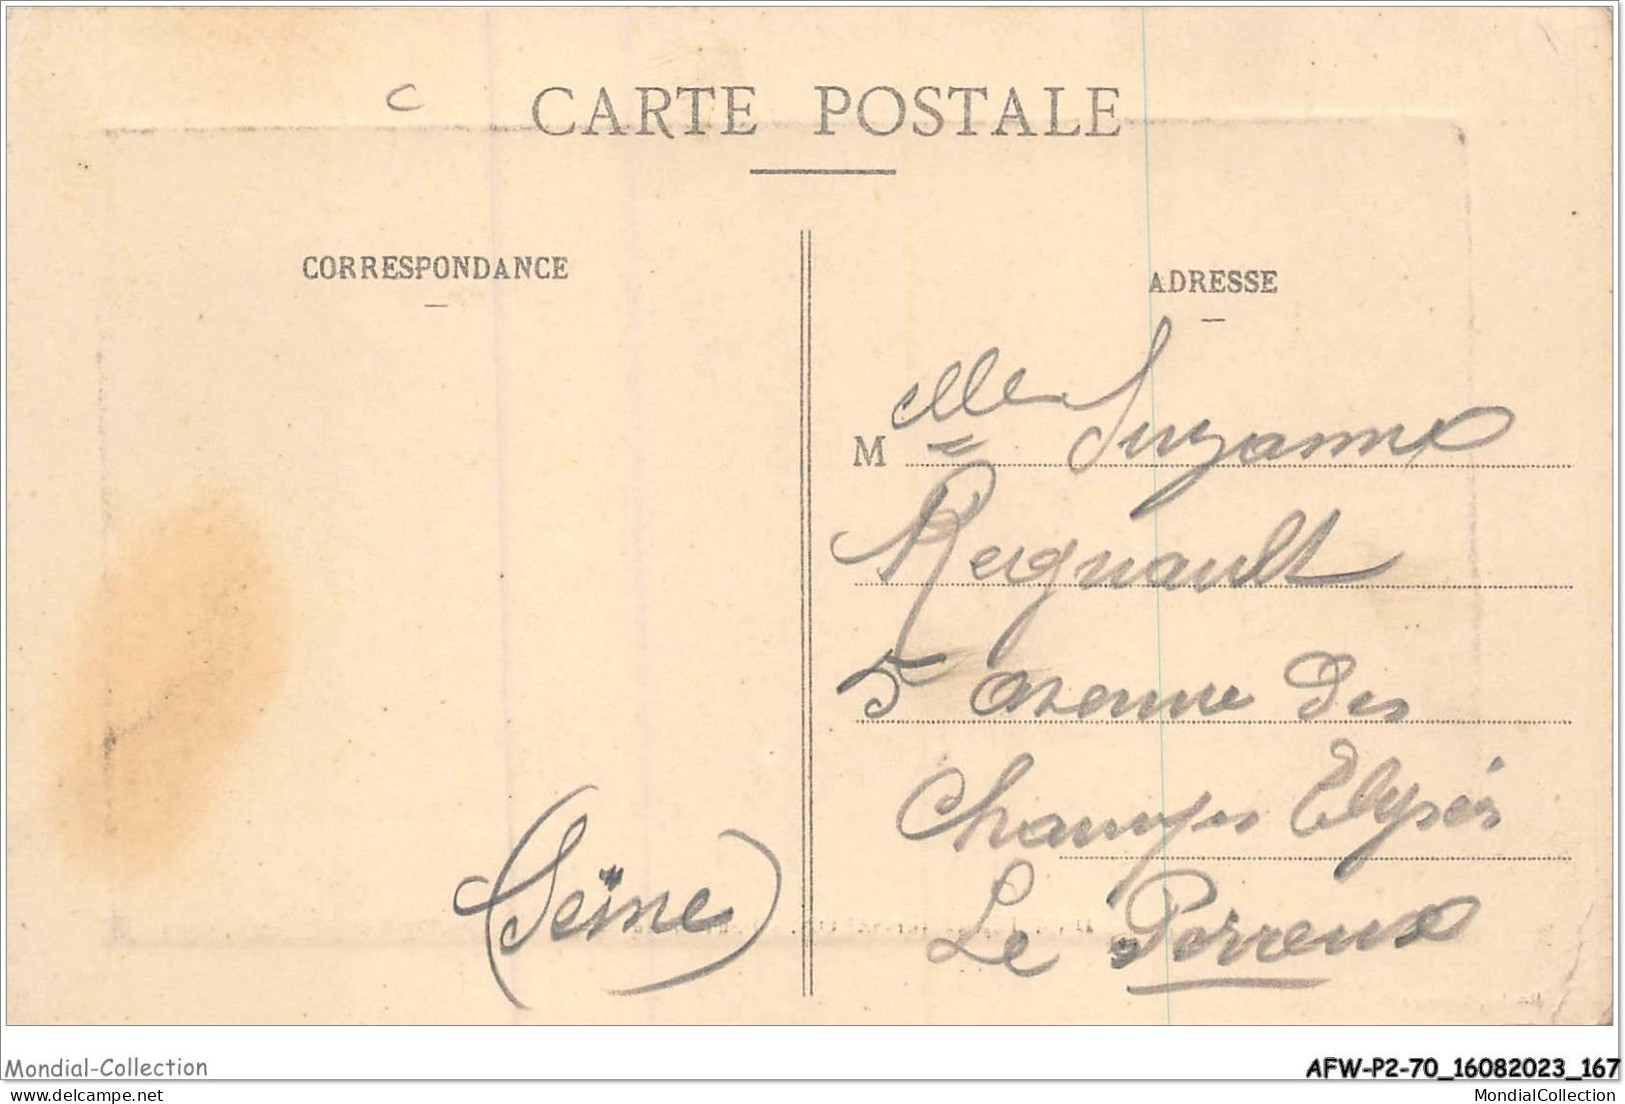 C
CARTE POSTALE
CORRESPONDANCE
ADRESSE
M elle Suzanne
Regnault
5 avenue des
Champs Elysées
Le Perreux
(Seine)
Mondial-Collection
AFW-P2-70_16082023_167
delcampe.net
MondialCollection